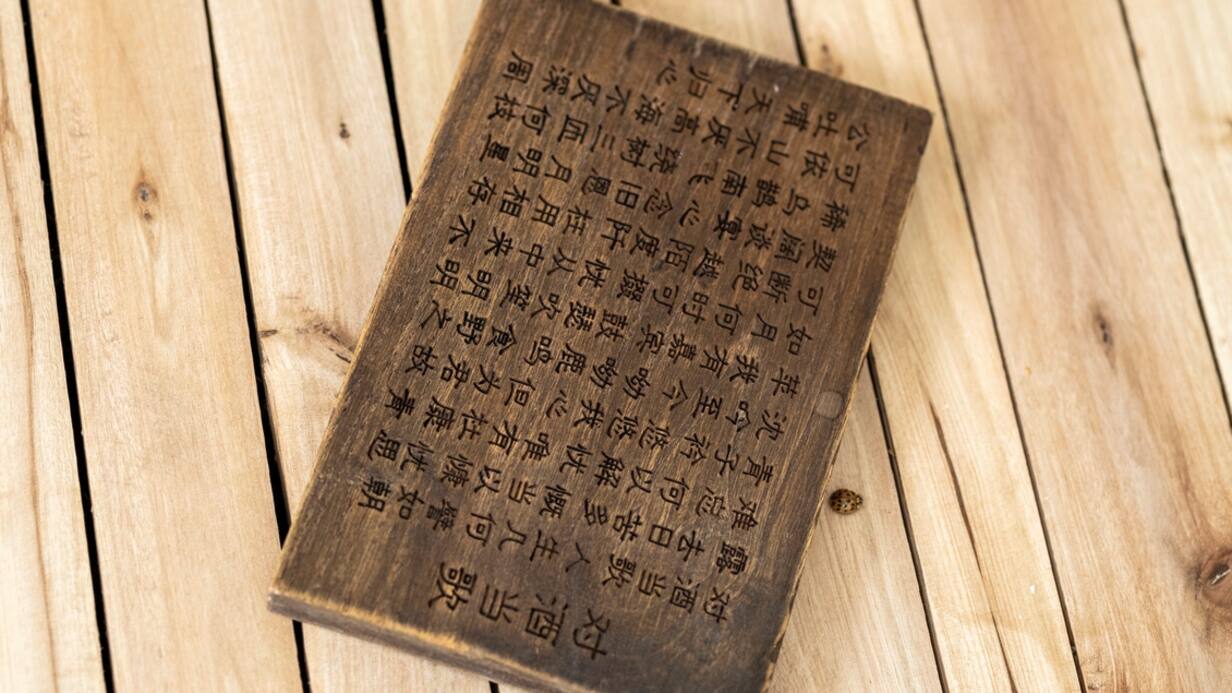 对酒当歌
对酒当歌 人生几何 譬如朝
露 去日苦多 慨当以慷 忧思
难忘 何以解忧 唯有杜康 青
青子衿 悠悠我心 但为君故
沈吟至今 呦呦鹿鸣 食野之
苹 我有嘉宾 鼓瑟吹笙 明明
如月 何时可掇 忧从中来 不
可断绝 越陌度阡 枉用相存
契阔谈宴 心念旧恩 月明星
稀 乌鹊南飞 绕树三匝 何枝
可依 山不厌高 海不厌深 周
公吐哺 天下归心